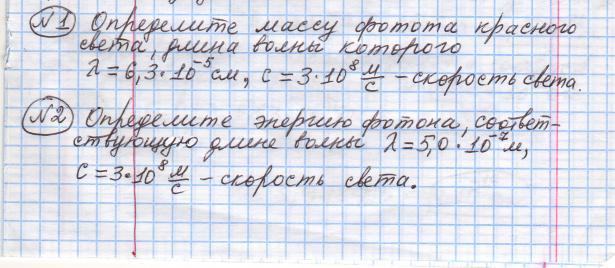 №1 Определите массу фотота красного
света, длина волны которого
λ = 6,3·10⁻⁵ см, c = 3·10⁸ м/с – скорость света.
№2 Определите энергию фотона, соответ-
ствующую длине волны λ = 5,0·10⁻⁷ м,
c = 3·10⁸ м/с – скорость света.